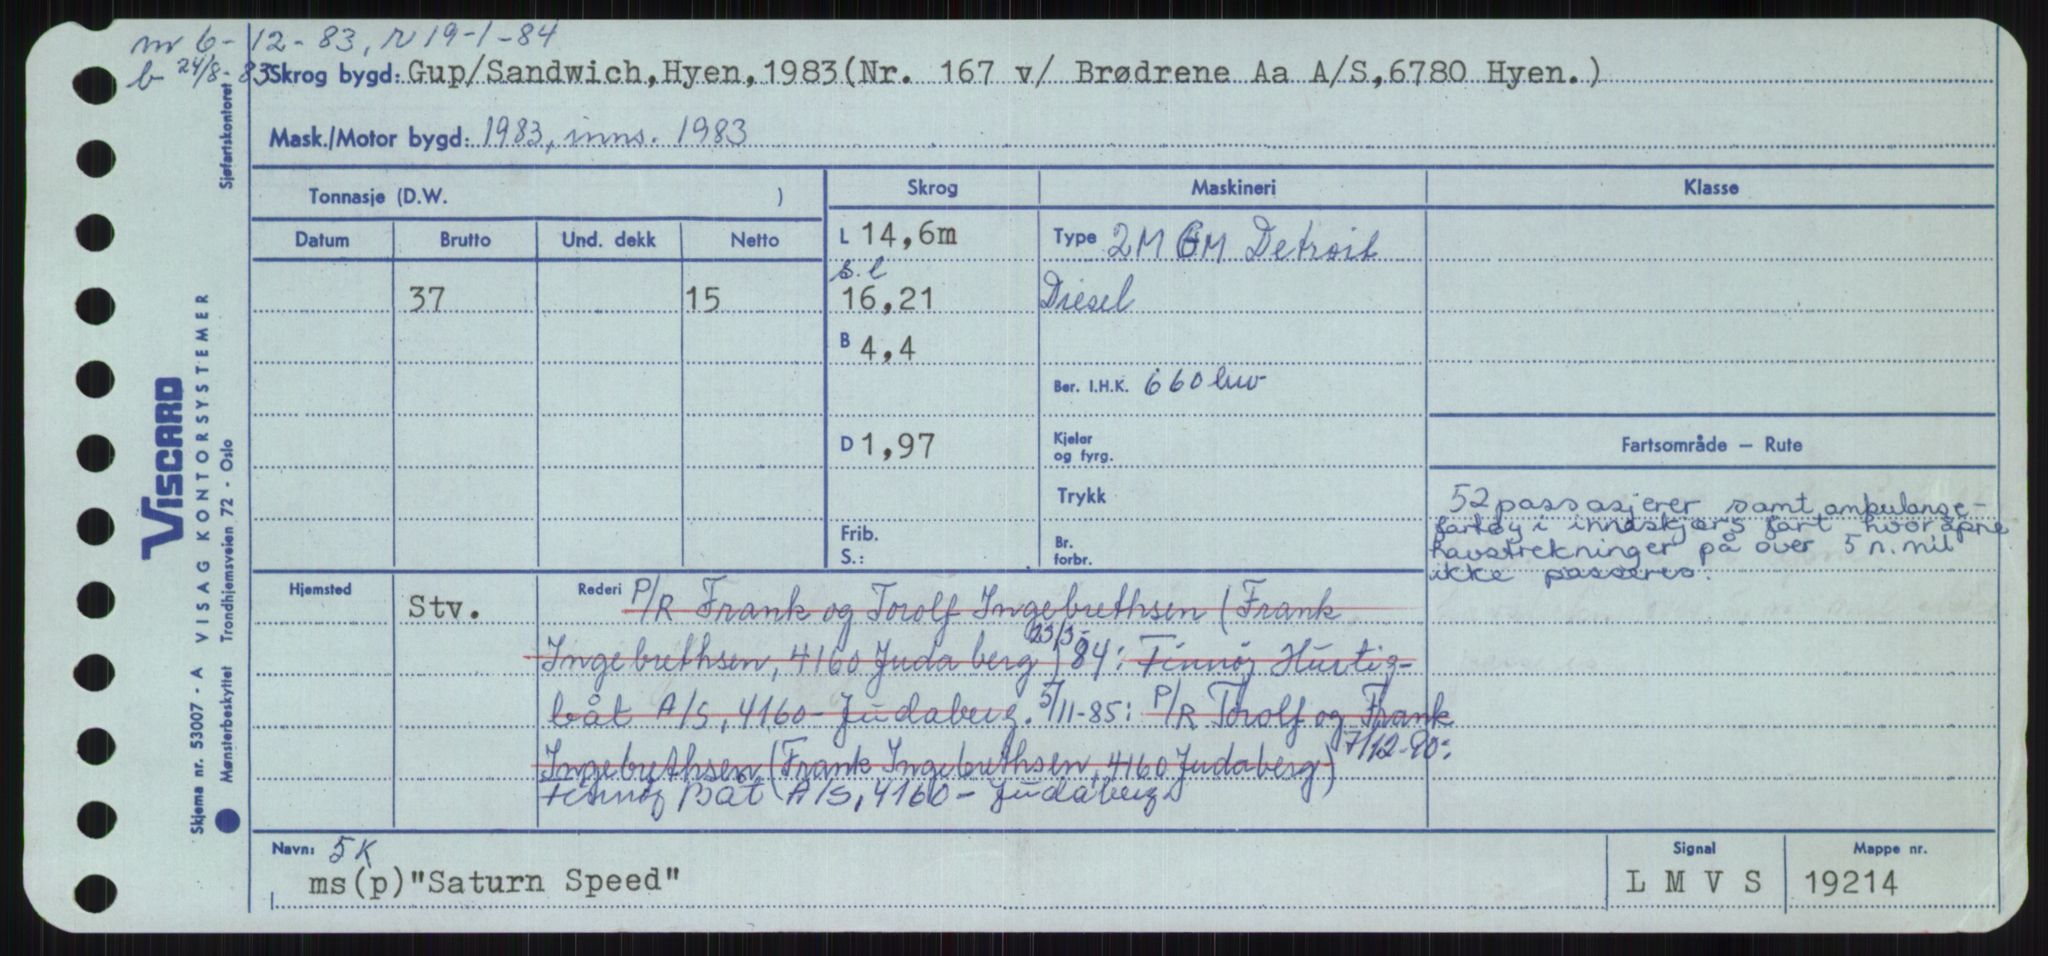 nr 6-12-83, r 19-1-84
b 24/8-83 Skrog bygd: Gup/Sandwich,Hyen,1983(Nr. 167 v/ Brødrene Aa A/S,6780 Hyen.)
Mask./Motor bygd: 1983, inns. 1983
Tonnasje (D.W. )
Skrog
Maskineri
Klasse
Datum Brutto Und. dekk Netto
L 14,6m
Type 2M GM Detroit
s.l
37 15
16,21
Diesel
B 4,4
Ber. I.H.K. 660 hk
D 1,97
Kjelar
og fyrg.
Fartsområde — Rute
Trykk
52 passasjerer samt ambulanse-
fartøy i innaskjærs fart hvor åpne
havstrekninger på over 5 n.mil
ikke passeres.
Frib.
S.:
Br.
forbr.
Hjemsted
Stv.
Rederi P/R Frank og Torolf Ingebrethsen (Frank
Ingebrethsen, 4160 Judaberg) 23/3-84: Finnøy Hurtig-
båt A/S, 4160 - Judaberg. 5/11-85: P/R Torolf og Frank
Ingebrethsen (Frank Ingebrethsen, 4160 Judaberg) 7/12-90:
Finnøy Båt A/S, 4160 - Judaberg.
Navn: 5K
ms(p)"Saturn Speed"
Signal
L M V S
Mappe nr.
19214
Sjøfartskontoret
VISCARD
VISAG KONTORSYSTEMER
Trondhjemsveien 72 - Oslo
Skjema nr. 53007 - A
Mønsterbeskyttet